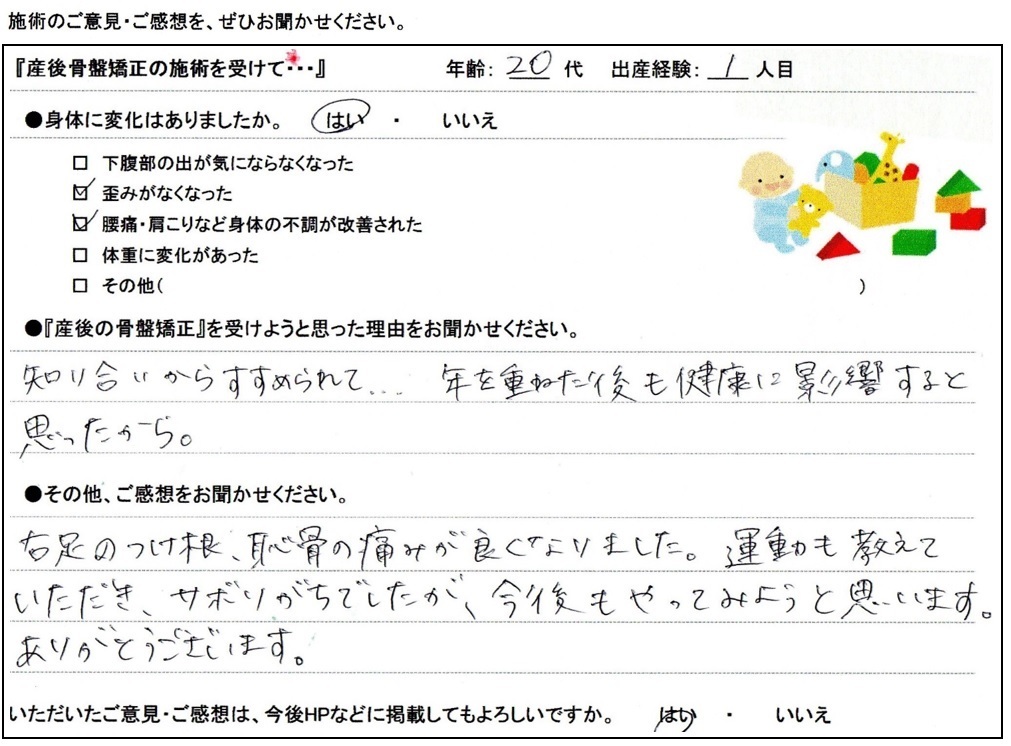 施術のご意見・ご感想を、ぜひお聞かせください。
『産後骨盤矯正の施術を受けて・・・』 年齢: 20 代 出産経験: 1 人目
●身体に変化はありましたか。 はい ・ いいえ
□ 下腹部の出が気にならなくなった
☑ 歪みがなくなった
☑ 腰痛・肩こりなど身体の不調が改善された
□ 体重に変化があった
□ その他( )
●『産後の骨盤矯正』を受けようと思った理由をお聞かせください。
知り合いからすすめられて... 年を重ねた後も健康に影響すると
思ったから。
●その他、ご感想をお聞かせください。
右足のつけ根、恥骨の痛みが良くなりました。運動も教えて
いただき、サボりがちでしたが、今後もやってみようと思います。
ありがとうございます。
いただいたご意見・ご感想は、今後HPなどに掲載してもよろしいですか。 はい ・ いいえ